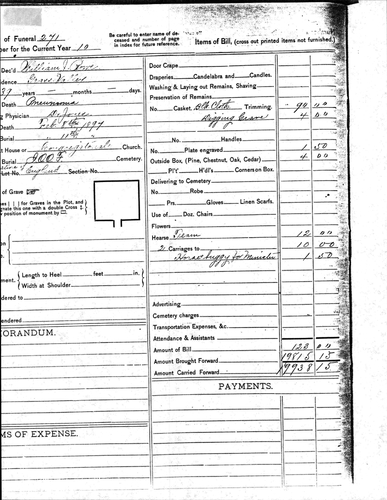 of Funeral 271
ber for the Current Year 10
Be carefull to enter name of deceased and number of page in index for future reference.
Dec'd William J. Rowe
dence Grass Valley
39 years — months — days.
Death Pneumonia
Physician
Death Feb. 1897
House or Congregat'l Church.
I.O.O.F. Cemetery.
England Section No.
of Grave
for Graves in the Plot, and
gnate this one with a double Cross
position of monument by
Length to Heel feet in.
Width at Shoulder
dered to
endered
MORANDUM.
MS OF EXPENSE.
Items of Bill, (cross out printed items not furnished.)
Door Crape
Draperies Candelabra and Candles.
Washing & Laying out Remains, Shaving
Preservation of Remains
No. Casket, Blk Cloth Trimming. 90 00
Digging Grave 4 00
No. Handles
No. Plate engraved 1 50
Outside Box (Pine, Chestnut, Oak, Cedar) 4 00
Corners on Box.
Delivering to Cemetery
No. Robe
Prs. Gloves Linen Scarfs.
Use of Doz. Chairs
Flowers
Hearse Team 12 00
2 Carriages to 10 00
Horse & buggy for Minister 1 50
Advertising
Cemetery charges
Transportation Expenses, &c.
Attendance & Assistants
Amount of Bill 123 00
Amount Brought Forward 19815 15
Amount Carried Forward 19938 15
PAYMENTS.